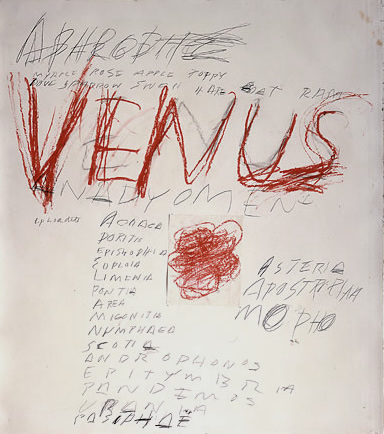 APHRODITE
MYRTLE ROSE APPLE POPPY
DOVE SPARROW SWAN HARE GOAT RAM
VENUS
ANADYOMENE
EPHORATE
ACRAEA
DORITIS
EPISTROPHIA
EUPLOIA
LIMENIA
PONTIA
AREA
MIGONITIS
NUMPHAEA
SCOTIA
ANDROPHONOS
EPITYMBRIA
PANDEMOS
URANIA
PASIPHAE
ASTERIA
APOSTROPHIA
MORPHO